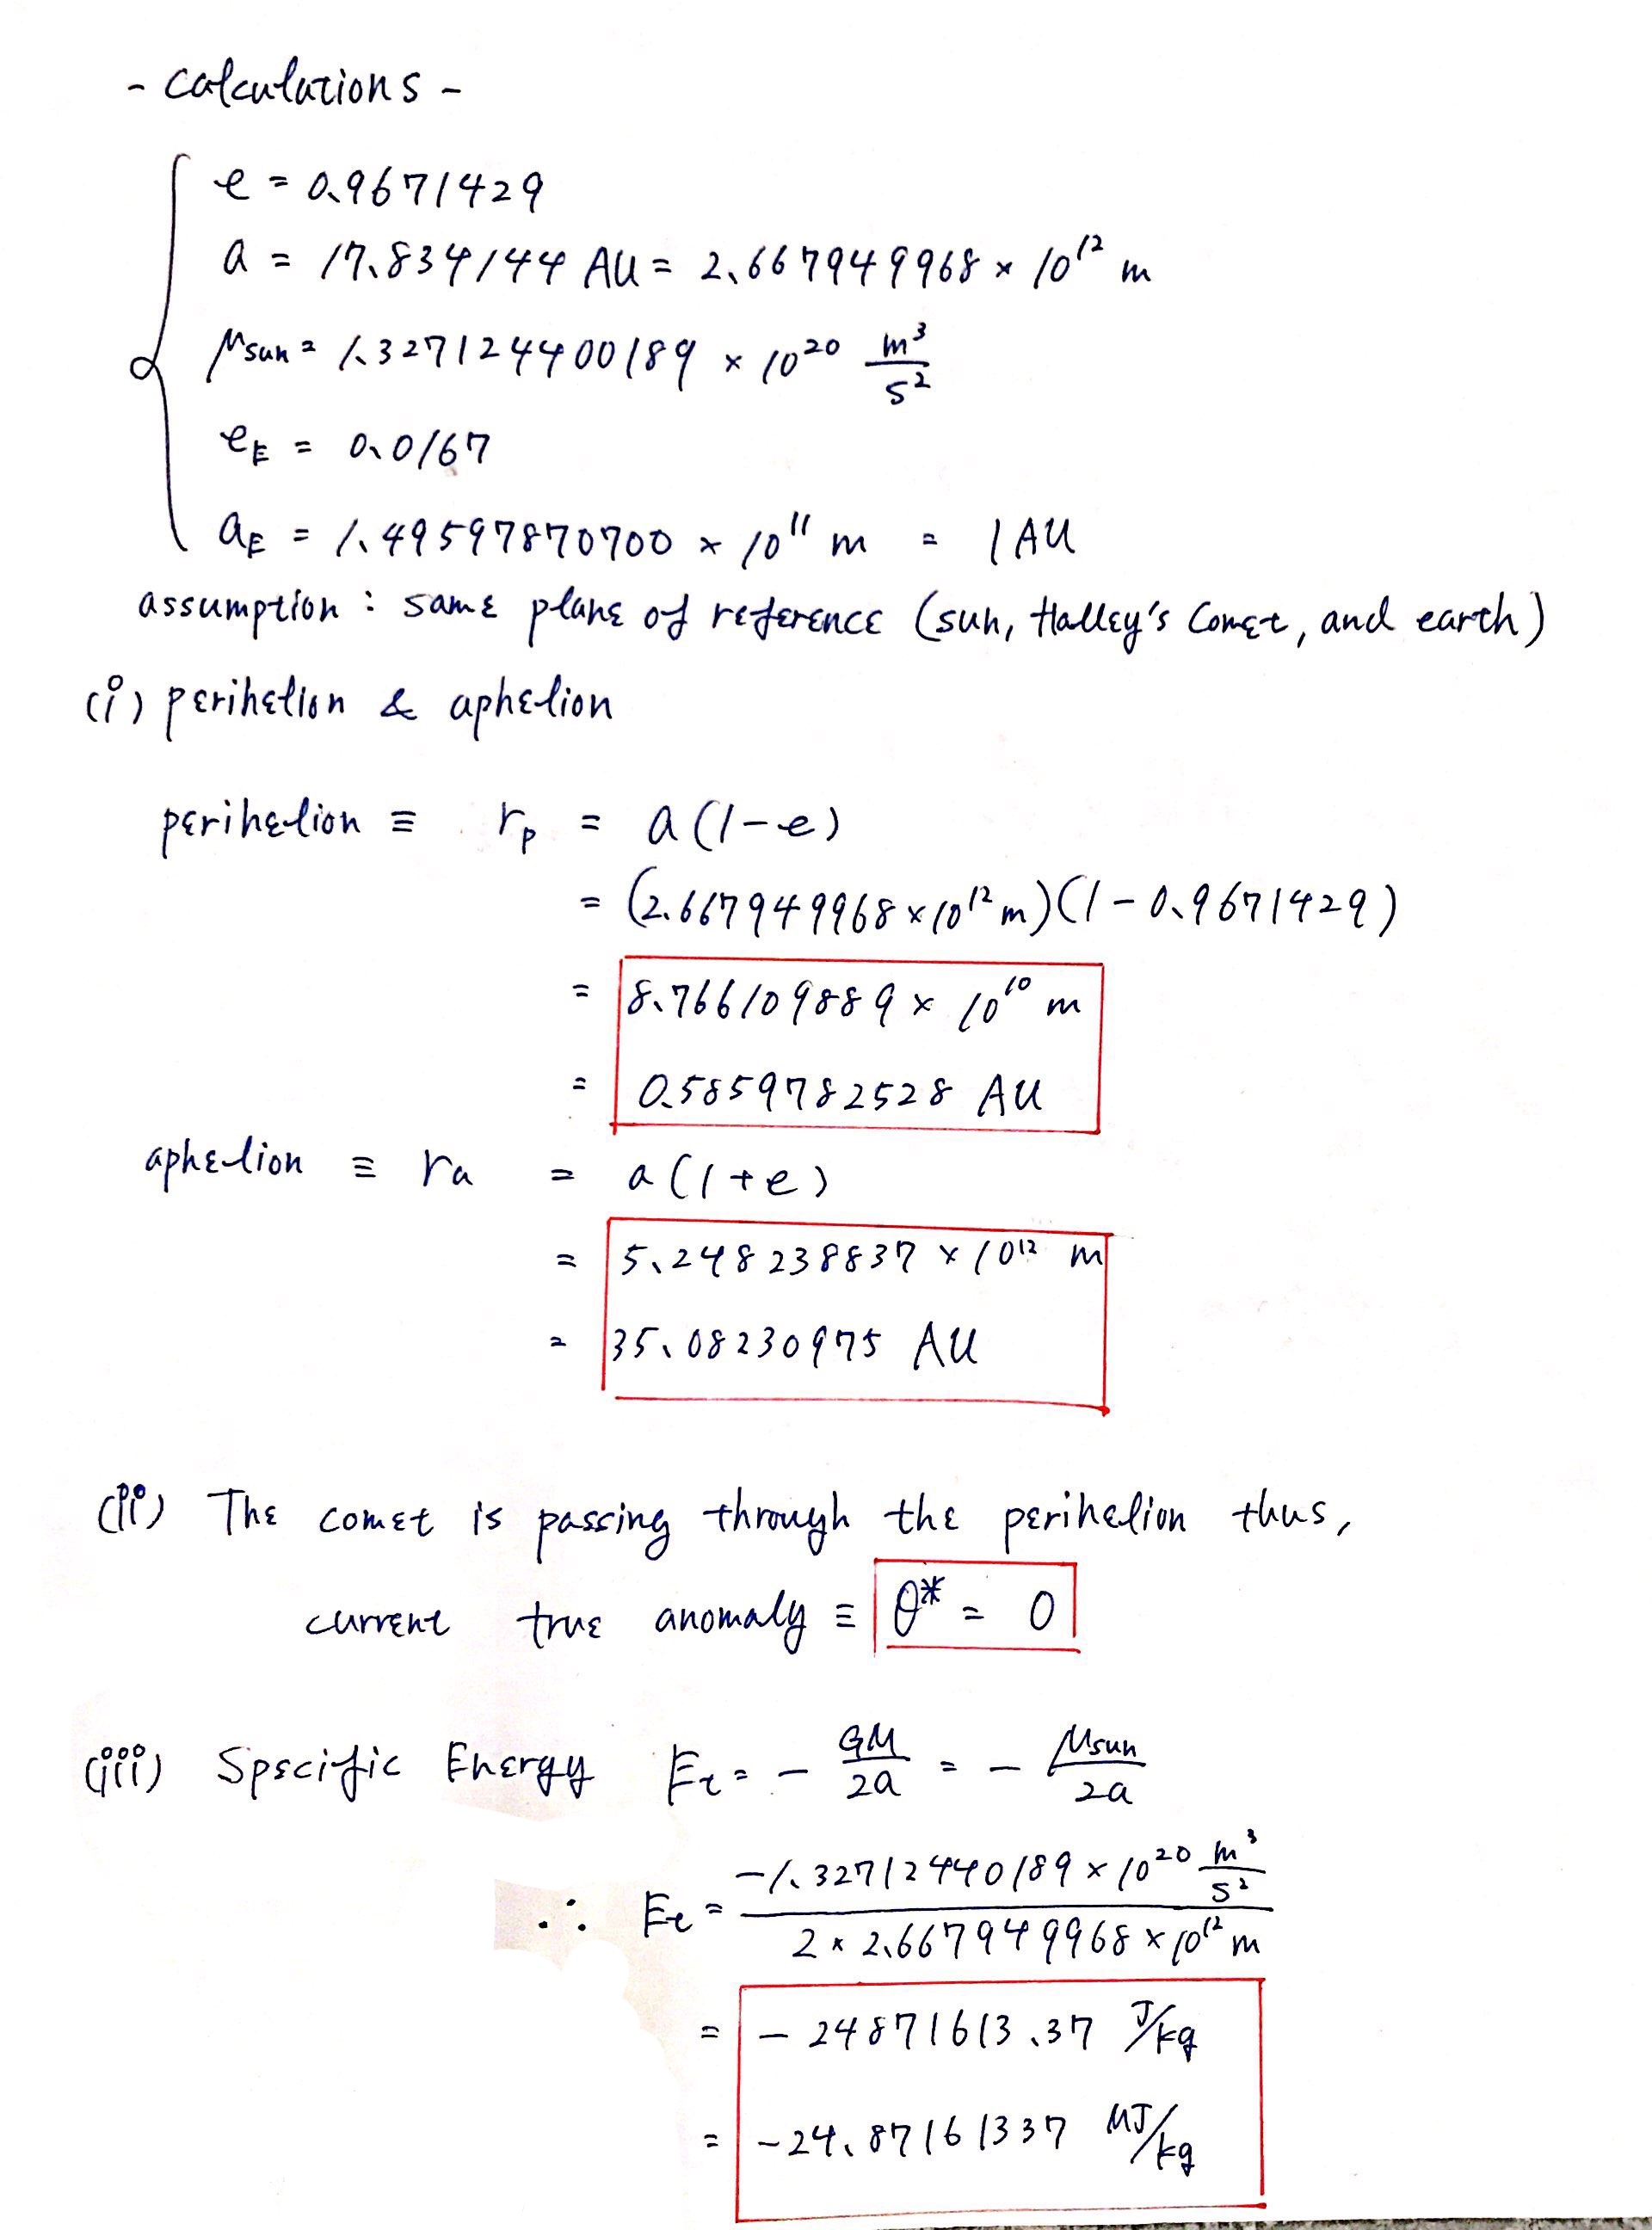 - Calculations -
e = 0.9671429
a = 17.834144 AU = 2.667949968 × 10¹² m
μsun = 1.3271244400189 × 10²⁰ m³/s²
eE = 0.0167
aE = 1.49597870700 × 10¹¹ m = 1 AU
assumption : same plane of reference (sun, Halley's Comet, and earth)
(i) perihelion & aphelion
perihelion ≡ rp = a(1-e)
= (2.667949968 × 10¹² m)(1 - 0.9671429)
= 8.766109889 × 10¹⁰ m
= 0.5859782528 AU
aphelion ≡ ra = a(1+e)
= 5.248238837 × 10¹² m
= 35.08230975 AU
(ii) The comet is passing through the perihelion thus,
current true anomaly ≡ θ* = 0
(iii) Specific Energy Et = - GM/2a = - μsun/2a
∴ Et = -1.32712440189 × 10²⁰ m³/s² / 2 × 2.667949968 × 10¹² m
= - 24871613.37 J/kg
= -24.87161337 MJ/kg